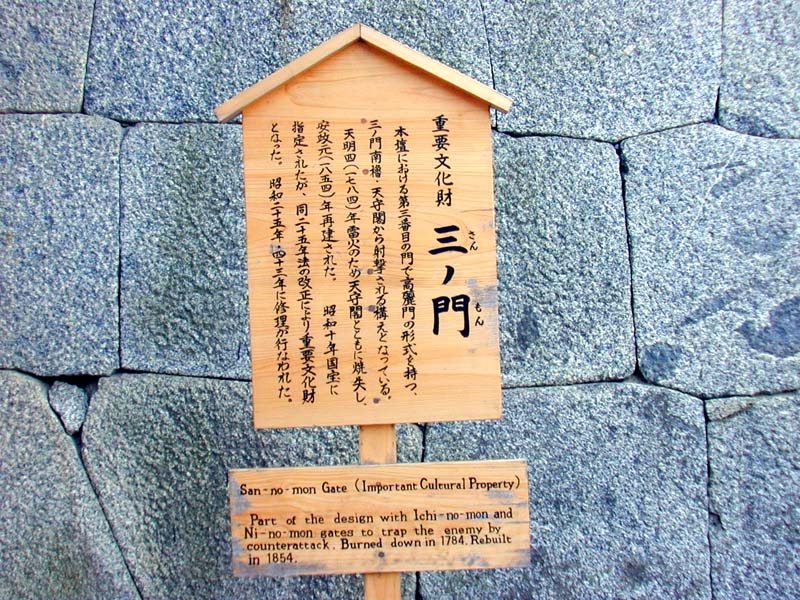 重要文化財 三ノ門
さん
もん
本壇における第三番目の門で高麗門の形式を持つ、
三ノ門南櫓・天守閣から射撃される構えとなっている。
天明四(一七八四)年雷火のため天守閣とともに焼失し、
安政元(一八五四)年再建された。 昭和十年国宝に
指定されたが、同二十五年法の改正により重要文化財
となった。 昭和二十五年、四十三年に修理が行なわれた。
San-no-mon Gate (Important Cultural Property)
Part of the design with Ichi-no-mon and
Ni-no-mon gates to trap the enemy by
counterattack. Burned down in 1784. Rebuilt
in 1854.